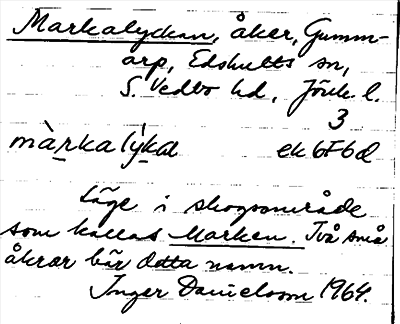 Markalyckan, åker, Gumm-
arp, Edshults sn,
S. Vedbo hd, Jönk. l.
3
màrkalỳka ek 6F6d
Läge i skogsområde
som kallas Marken. Två små
åkrar bär detta namn.
Inger Danielsson 1964.